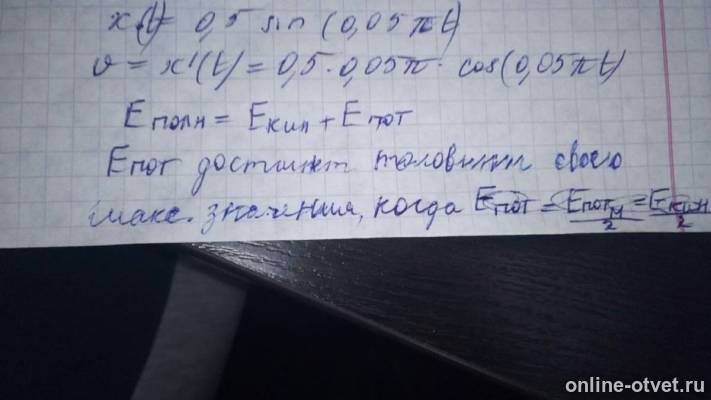 x(t) = 0,5 sin (0,05πt)
v = x'(t) = 0,5·0,05π· cos(0,05πt)
Eполн = Eкин + Eпот
Eпот достигнет половины своего
макс. значения, когда Eпот = Eпот м/2 = Eкин/2
online-otvet.ru